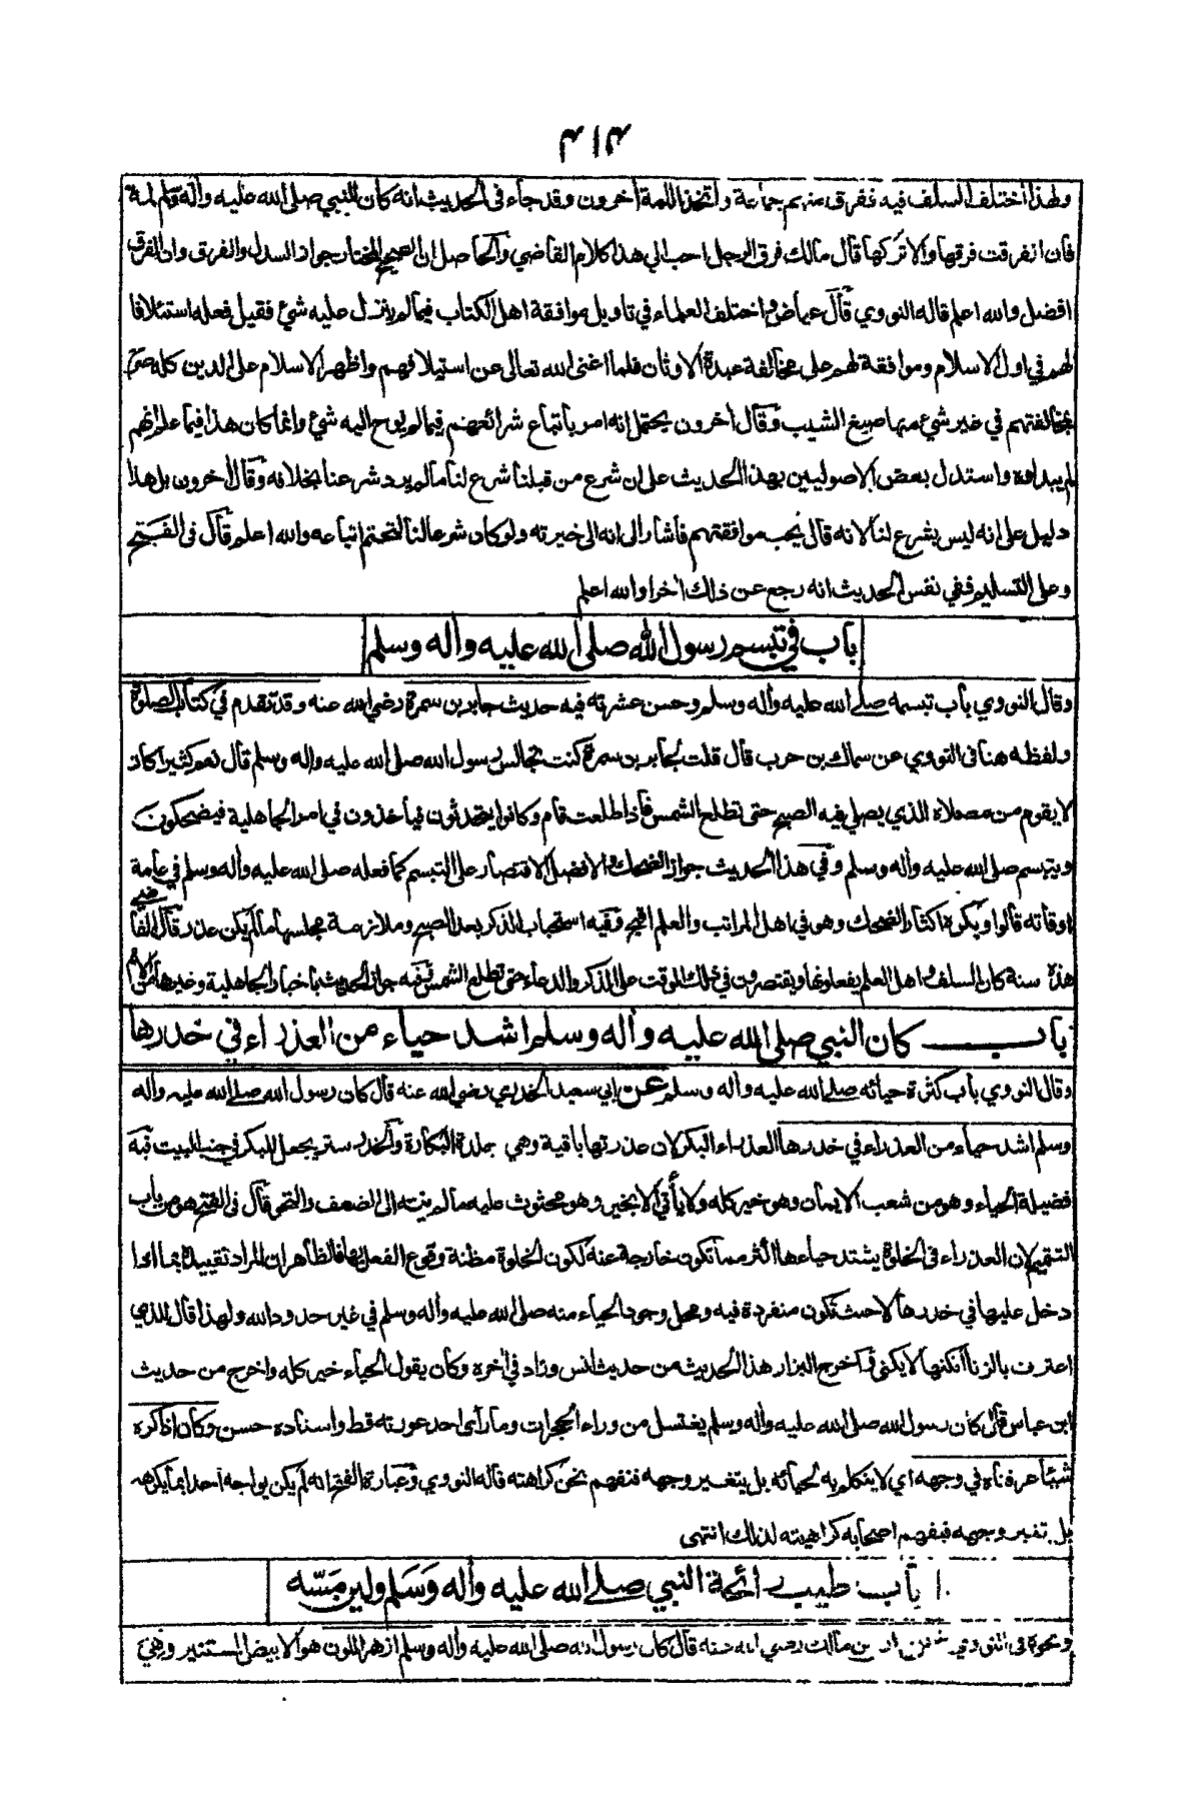 ولهذا اختلف السلف فيه ففرق منهم جماعة واتخذ اللمة آخرون وقد جاء في الحديث انه كان للنبي صلى الله عليه وآله وسلم لمة
فان انفرقت فرقها والا تركها قال مالك فرق الرجل احب الي هذا كلام القاضي والحاصل ان الصحيح المختار جواز السدل والفرق وان الفرق
افضل والله اعلم قاله النووي قال عياض واختلف العلماء في تاويل موافقة اهل الكتاب فيما لم ينزل عليه شئ فقيل فعله استئلافا
لهم في اول الاسلام وموافقة لهم على مخالفة عبدة الاوثان فلما اغنى الله تعالى عن استيلافهم واظهر الاسلام على الدين كله صرح
بمخالفتهم في غير شئ منها صبغ الشيب وقال آخرون يحتمل انه امر باتباع شرائعهم فيما لم يوح اليه شئ وانما كان هذا فيما علم انهم
لم يبدلوه واستدل بعض الاصوليين بهذا الحديث على ان شرع من قبلنا شرع لنا ما لم يرد شرعنا بخلافه وقال آخرون بل هذا
دليل على انه ليس بشرع لنا لانه قال يحب موافقتهم فاشار الى انه الى خيرته ولو كان شرعا لنا لتحتم اتباعه والله اعلم قال في الفتح
وعلى التسليم ففي نفس الحديث انه رجع عن ذلك آخرا والله اعلم
باب في تبسم رسول الله صلى الله عليه وآله وسلم
وقال النووي باب تبسمه صلى الله عليه وآله وسلم وحسن عشرته فيه حديث جابر بن سمرة رضي الله عنه وقد تقدم في كتاب الصلوة
ولفظه هنا في النووي عن سماك بن حرب قال قلت لجابر بن سمرة كنت تجالس رسول الله صلى الله عليه وآله وسلم قال نعم كثيرا كان
لا يقوم من مصلاه الذي يصلي فيه الصبح حتى تطلع الشمس فاذا طلعت قام وكانوا يتحدثون فيأخذون في امر الجاهلية فيضحكون
ويتبسم صلى الله عليه وآله وسلم وفي هذا الحديث جواز الضحك والافضل الاقتصار على التبسم كما فعله صلى الله عليه وآله وسلم في عامة
اوقاته قالوا ويكره اكثار الضحك وهو في اهل المراتب والعلم اقبح وفيه استحباب الذكر بعد الصبح وملازمة مجلسها ما لم يكن عذر قال القاضي
هذه سنة كان السلف واهل العلم يفعلونها ويقتصرون في ذلك الوقت على الذكر والدعاء حتى تطلع الشمس وفيه جواز الحديث باخبار الجاهلية وغيرها من الامم
باب كان النبي صلى الله عليه وآله وسلم اشد حياء من العذراء في خدرها
وقال النووي باب كثرة حيائه صلى الله عليه وآله وسلم عن ابي سعيد الخدري رضي الله عنه قال كان رسول الله صلى الله عليه وآله
وسلم اشد حياء من العذراء في خدرها العذراء البكر لان عذرتها باقية وهي جلدة البكارة والخدر ستر يجعل للبكر في جنب البيت فيه
فضيلة الحياء وهو من شعب الايمان وهو خير كله ولا يأتي الا بخير وهو محثوث عليه ما لم ينته الى الضعف والنحو قال في الفتح هو من باب
التتميم لان العذراء في الخلوة يشتد حياءها اكثر مما تكون خارجة عنه لكون الخلوة مظنة وقوع الفعل بها فالظاهر ان المراد تقييده بما اذا
دخل عليها في خدرها لا حيث تكون منفردة فيه ومحل وجود الحياء منه صلى الله عليه وآله وسلم في غير حدود الله ولهذا قال للذي
اعترف بالزنا انكتها لا يكنى واخرج البزار هذا الحديث من حديث انس وزاد في آخره وكان يقول الحياء خير كله واخرج من حديث
ابن عباس قال كان رسول الله صلى الله عليه وآله وسلم يغتسل من وراء الحجرات وما رأى احد عورته قط واسناده حسن وكان اذا كره
شيئا عرفناه في وجهه اي لا يتكلم به لحيائه بل يتغير وجهه فنفهم نحن كراهته قاله النووي وعبارة الفتح انه لم يكن يواجه احدا بما يكرهه
بل تغير وجهه فيفهم اصحابه كراهيته لذلك انتهى
باب طيب رائحة النبي صلى الله عليه وآله وسلم ولين مسه
ونحوه في النووي عن انس بن مالك رضي الله عنه قال كان رسول الله صلى الله عليه وآله وسلم ازهر اللون هو الابيض المستنير وهي